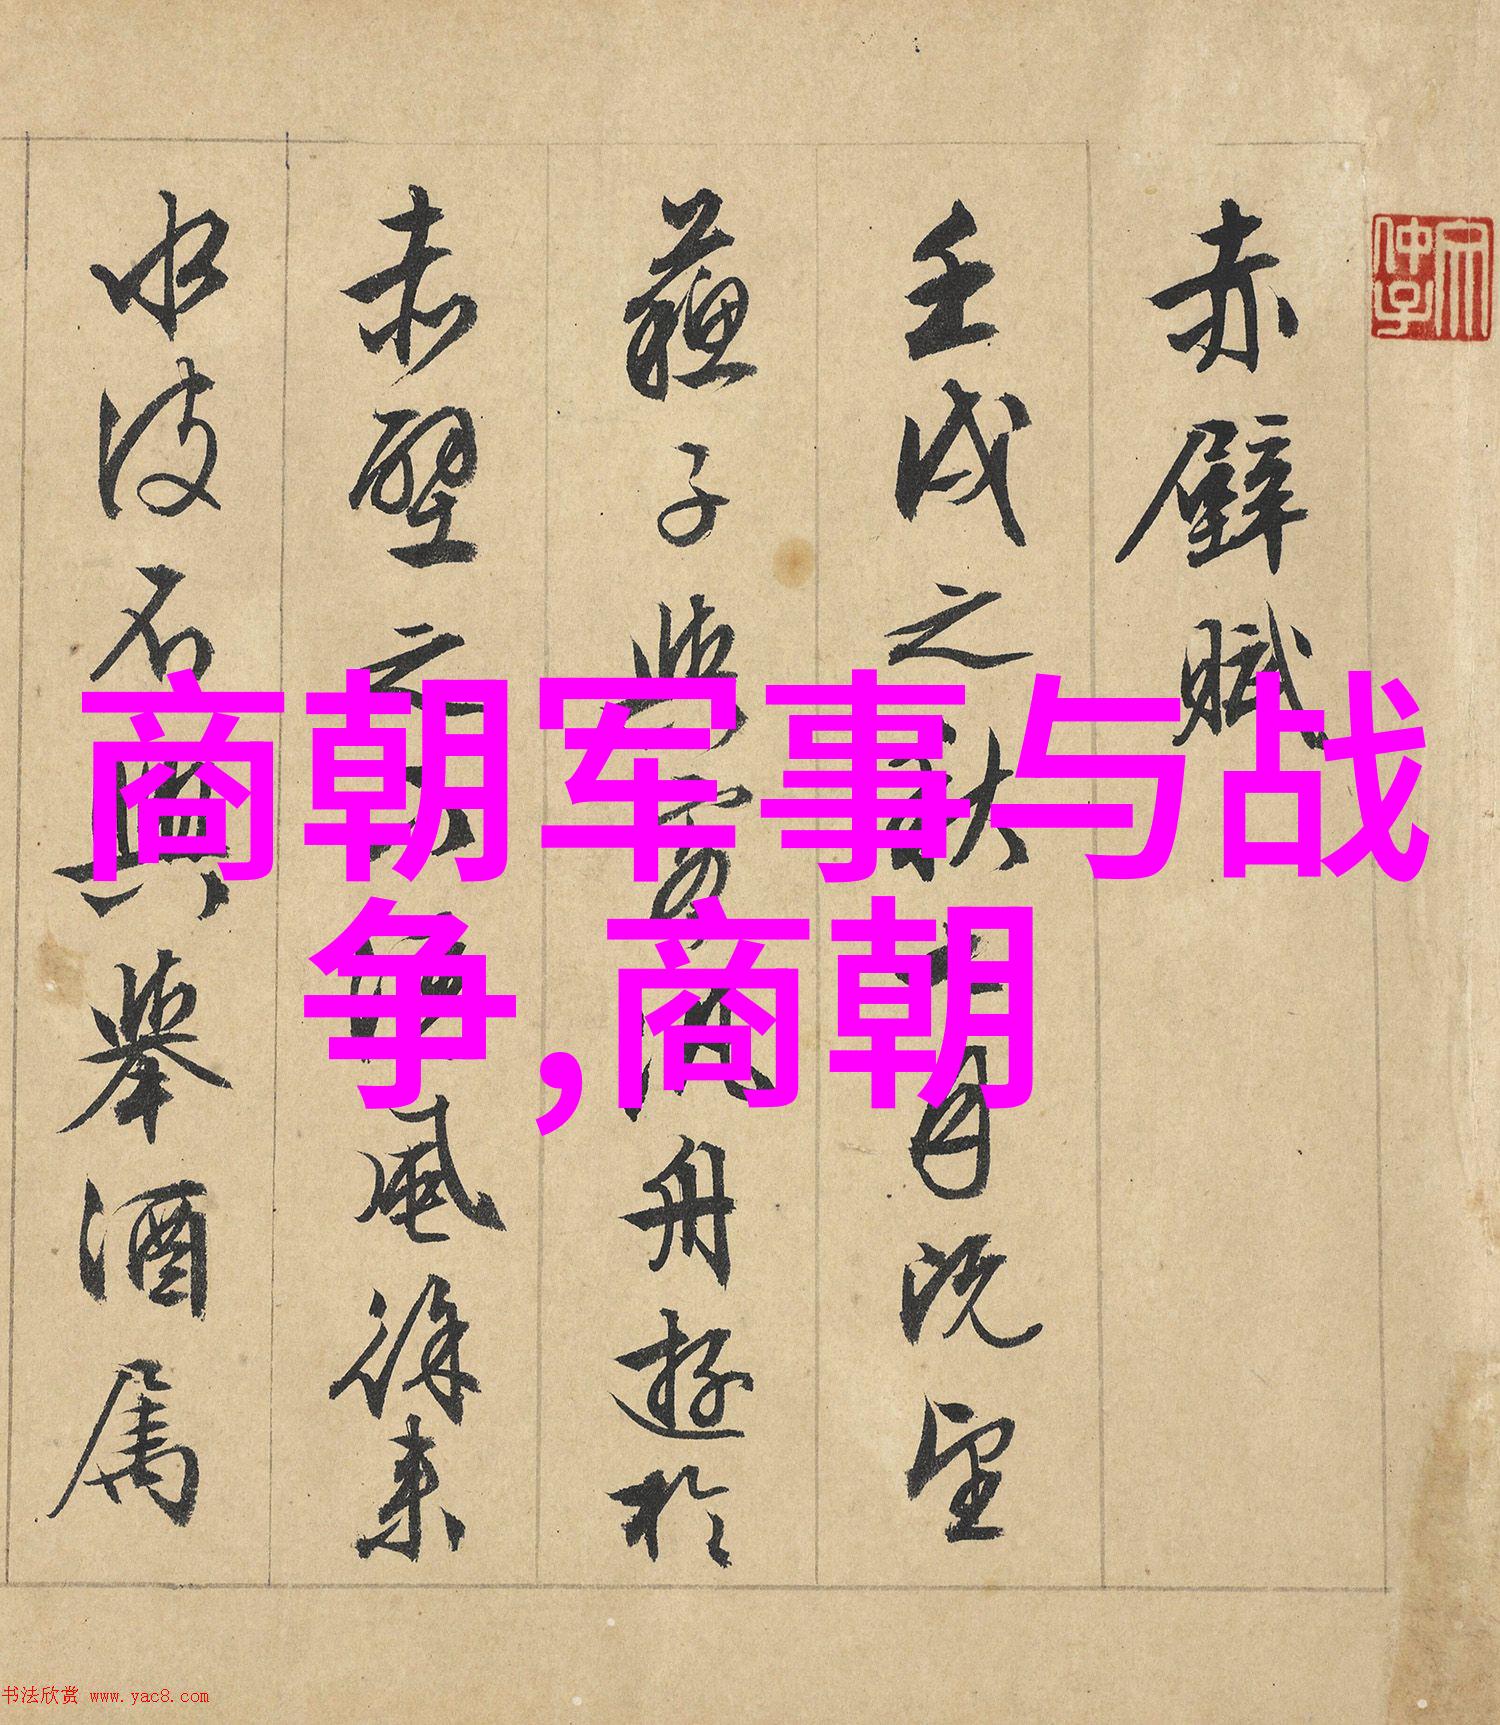 赤壁賦
壬戌之秋七月既望
蘇子與客泛舟遊於
赤壁之下清風徐來
水波不興舉酒属
商朝军事与战
争,商朝
书法欣赏 www.yac8.com